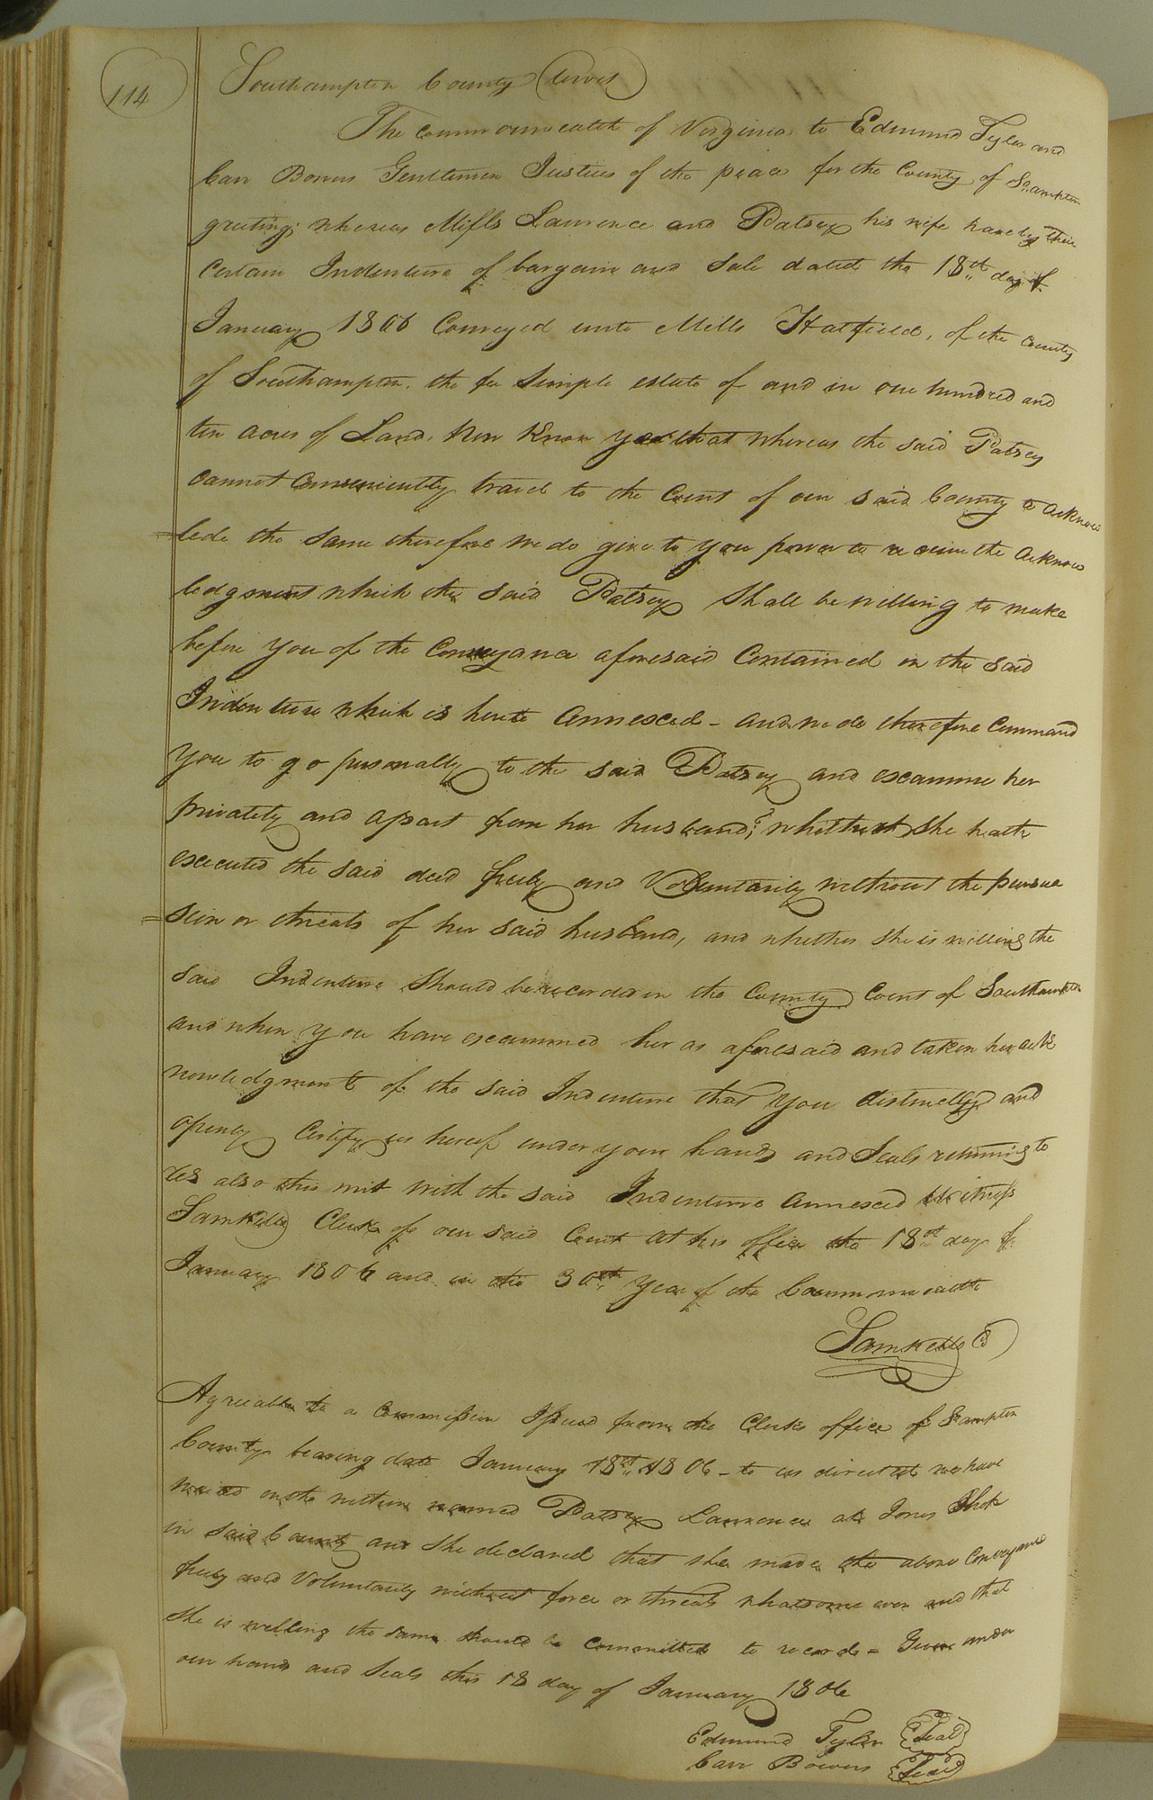 114
Southampton County (towit)
The commonwealth of Virginia to Edmund Tyler and
Carr Bowers Gentlemen Justices of the peace for the County of So.ampton
greeting; whereas Mills Laurence and Patsey his wife have by their
Certain Indenture of bargain and Sale dated the 18th day of
January 1806 Conveyed unto Mills Hatfield, of the County
of Southampton. the fee Simple estate of and in one hundred and
ten acres of Land. Now Know you that whereas the said Patsey
cannot Conveniently travel to the Court of our said County to acknow
=ledo the same therefore we do give to you power to receive the acknow
ledgment which the said Patsey Shall be willing to make
before you of the Conveyance aforesaid Contained in the said
Indenture which is hereto annexed - and we do therefore Command
you to go personally to the said Patsey and examine her
privately and apart from her husband; whether she hath
executed the said deed freely and Voluntarily without the pursua
=sion or threats of her said husband, and whether she is willing the
said Indenture Should be recorded in the County Court of Southampton
and when you have examined her as aforesaid and taken her ack
nowledgment of the said Indenture that you distinctly and
openly Certify us hereof under your hands and Seals returning to
us also this writ with the said Indenture annexed Witness
Saml Kello Clerk of our said Court at his office the 18th day of
January 1806 and in the 30th Year of the Commonwealth
Saml Kello C
Agreeable to a Commission Issued from the Clerks office of So.ampton
County bearing date January 18th 1806 - to us directed we have
waited on the within named Patsey Laurence at Jones Shop
in said County and She declared that she made the above Conveyance
freely and Voluntarily without force or threats whatsome ever and that
She is willing the same should be Committed to records = Given under
our hands and Seals this 18 day of January 1806
Edmund Tyler (Seal)
Carr Bowers (Seal)